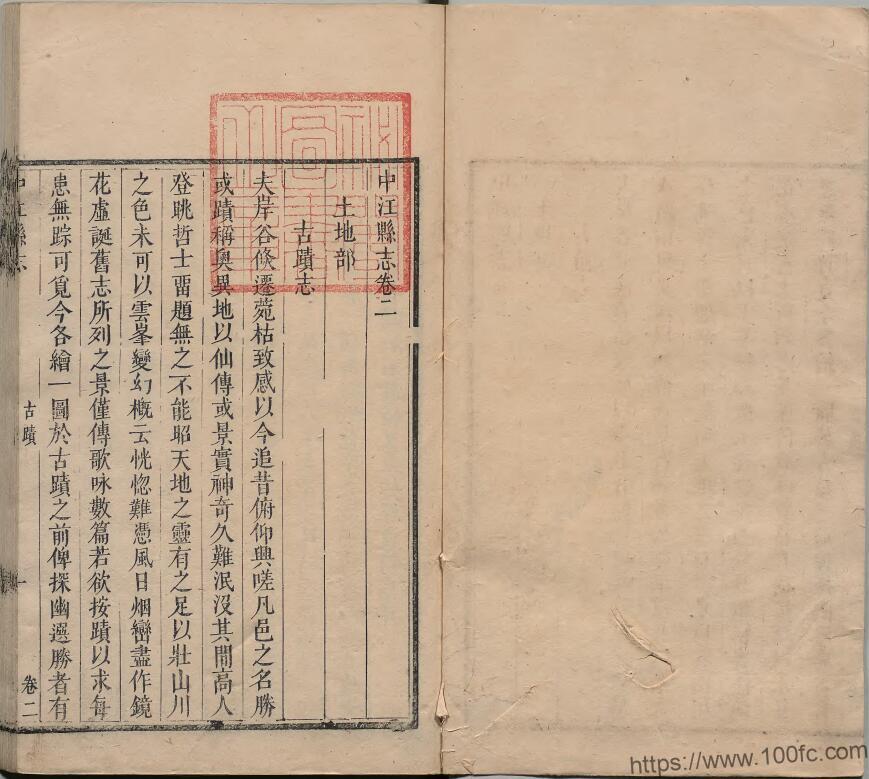 中江縣志卷二
土地部
古蹟志
夫岸谷倐遷菀枯致感以今追昔俯仰興嗟凡邑之名勝
或蹟稱奧異地以仙傳或景實神奇久難泯沒其閒高人
登眺哲士畱題無之不能昭天地之靈有之足以壯山川
之色未可以雲峯變幻概云恍惚難憑風日烟巒盡作鏡
花虛誕舊志所列之景僅傳歌咏數篇若欲按蹟以求每
患無踪可覓今各繪一圖於古蹟之前俾探幽選勝者有
中江縣志
古蹟
一
卷二
https://www.100fc.com